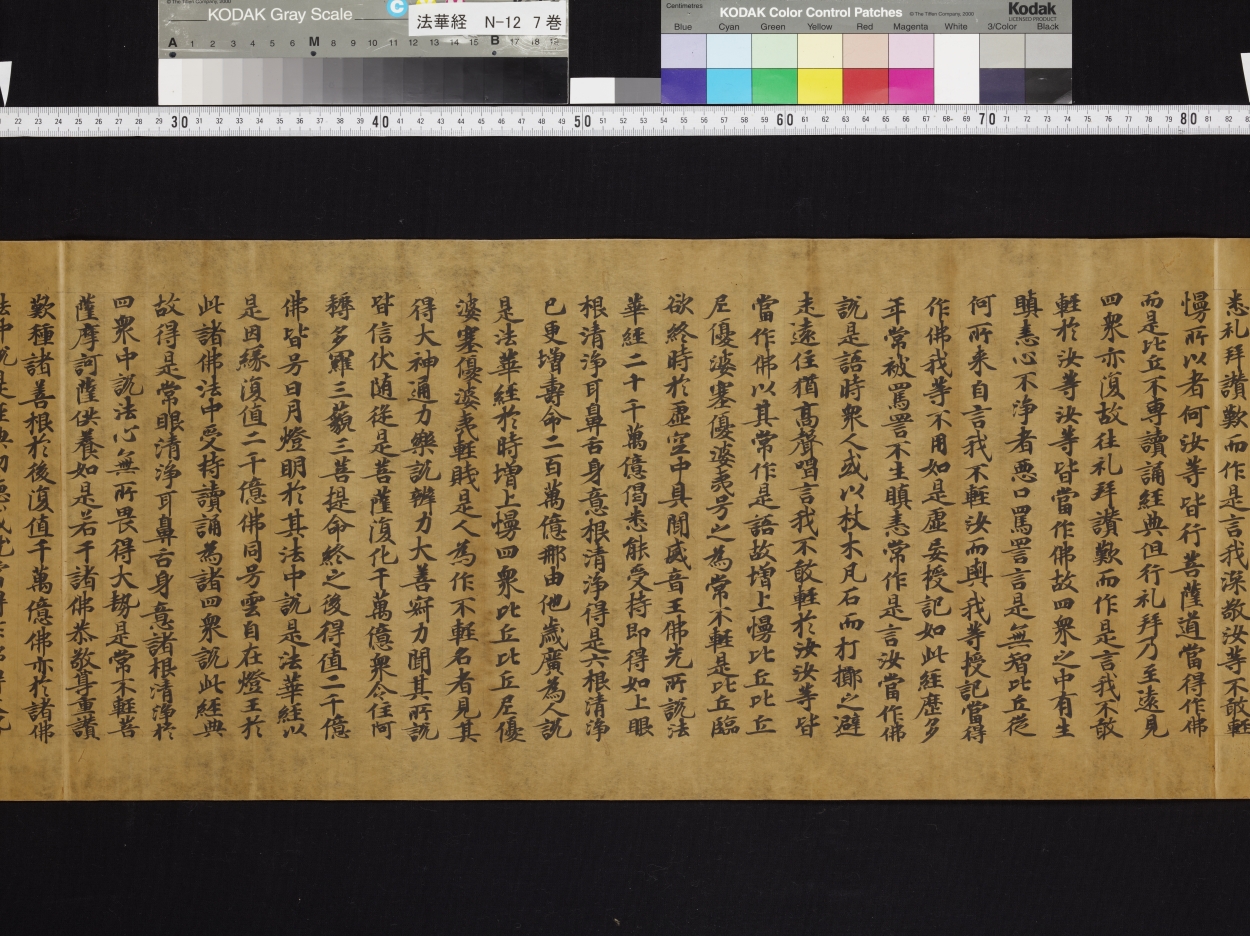 © The Tiffen Company, 2000
KODAK Gray Scale
C
法華経 N-12 7巻
A 1 2 3 4 5 6 M 8 9 10 11 12 13 14 15 B 17 18 19
Centimetres
KODAK Color Control Patches
© The Tiffen Company, 2000
Kodak
LICENSED PRODUCT
Blue Cyan Green Yellow Red Magenta White 3/Color Black
22 23 24 25 26 27 28 29 30 31 32 33 34 35 36 37 38 39 40 41 42 43 44 45 46 47 48 49 50 51 52 53 54 55 56 57 58 59 60 61 62 63 64 65 66 67 68 69 70 71 72 73 74 75 76 77 78 79 80 81 82
悉礼拜讃歎而作是言我深敬汝等不敢輕
慢所以者何汝等皆行菩薩道當得作佛
而是比丘不専讀誦經典但行礼拜乃至遠見
四衆亦復故往礼拜讃歎而作是言我不敢
輕於汝等汝等皆當作佛故四衆之中有生
瞋恚心不淨者惡口罵詈言是無智比丘從
何所来自言我不輕汝而與我等授記當得
作佛我等不用如是虛妄授記如此經歷多
年常被罵詈不生瞋恚常作是言汝當作佛
說是語時衆人或以杖木凡石而打擲之避
走遠住猶髙聲唱言我不敢輕於汝汝等皆
當作佛以其常作是語故増上慢比丘比丘
尼優婆塞優婆夷号之為常不輕是比丘臨
欲終時於虛空中具聞威音王佛先所說法
華經二十千萬億偈悉能受持即得如上眼
根清淨耳鼻舌身意根清淨得是六根清淨
已更増壽命二百萬億那由他歲廣為人說
是法華經於時増上慢四衆比丘比丘尼優
婆塞優婆夷輕賤是人為作不輕名者見其
得大神通力樂說辯力大善寂力聞其所說
皆信伏随從是菩薩復化千萬億衆令住阿
耨多羅三藐三菩提命終之後得值二千億
佛皆号日月燈明於其法中說是法華經以
是因緣復值二千億佛同号雲自在燈王於
此諸佛法中受持讀誦為諸四衆說此經典
故得是常眼清淨耳鼻舌身意諸根清淨於
四衆中說法心無所畏得大勢是常不輕菩
薩摩訶薩供養如是若干諸佛恭敬尊重讃
歎種諸善根於後復值千萬億佛亦於諸佛